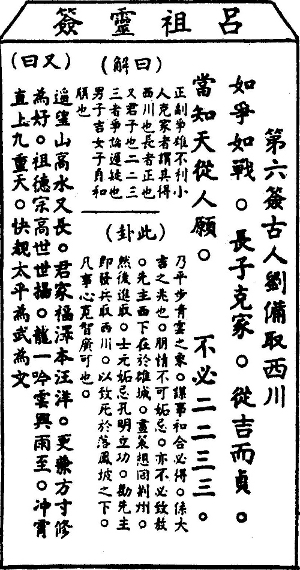 呂祖靈簽
第六簽古人劉備取西川
如爭如戰。長子克家。從吉而貞。
當知天從人願。不必二二三三。
(解曰)
正副爭雄不利小
人克家者謂其得
西川也長者正也
又君子也二二三
三者爭論遲疑也
男子吉女子貞和
順也
(此卦)
乃平步青雲之象。謀事和合必得。係大
吉之兆也。朋情不可妒忌。亦不必致敬
。先主西下在於雒城。畫策想回荊州。
然後進取。士元妒忌孔明立功。勸先主
即發兵取西川。以致死於落鳳坡之下。
凡事心寬智廣可也。
(又曰)
遙望山高水又長。君家福澤本汪洋。更兼方寸修
為好。祖德宗高世世揚。龍一吟雲興雨至。沖霄
直上九重天。快覩太平為武為文